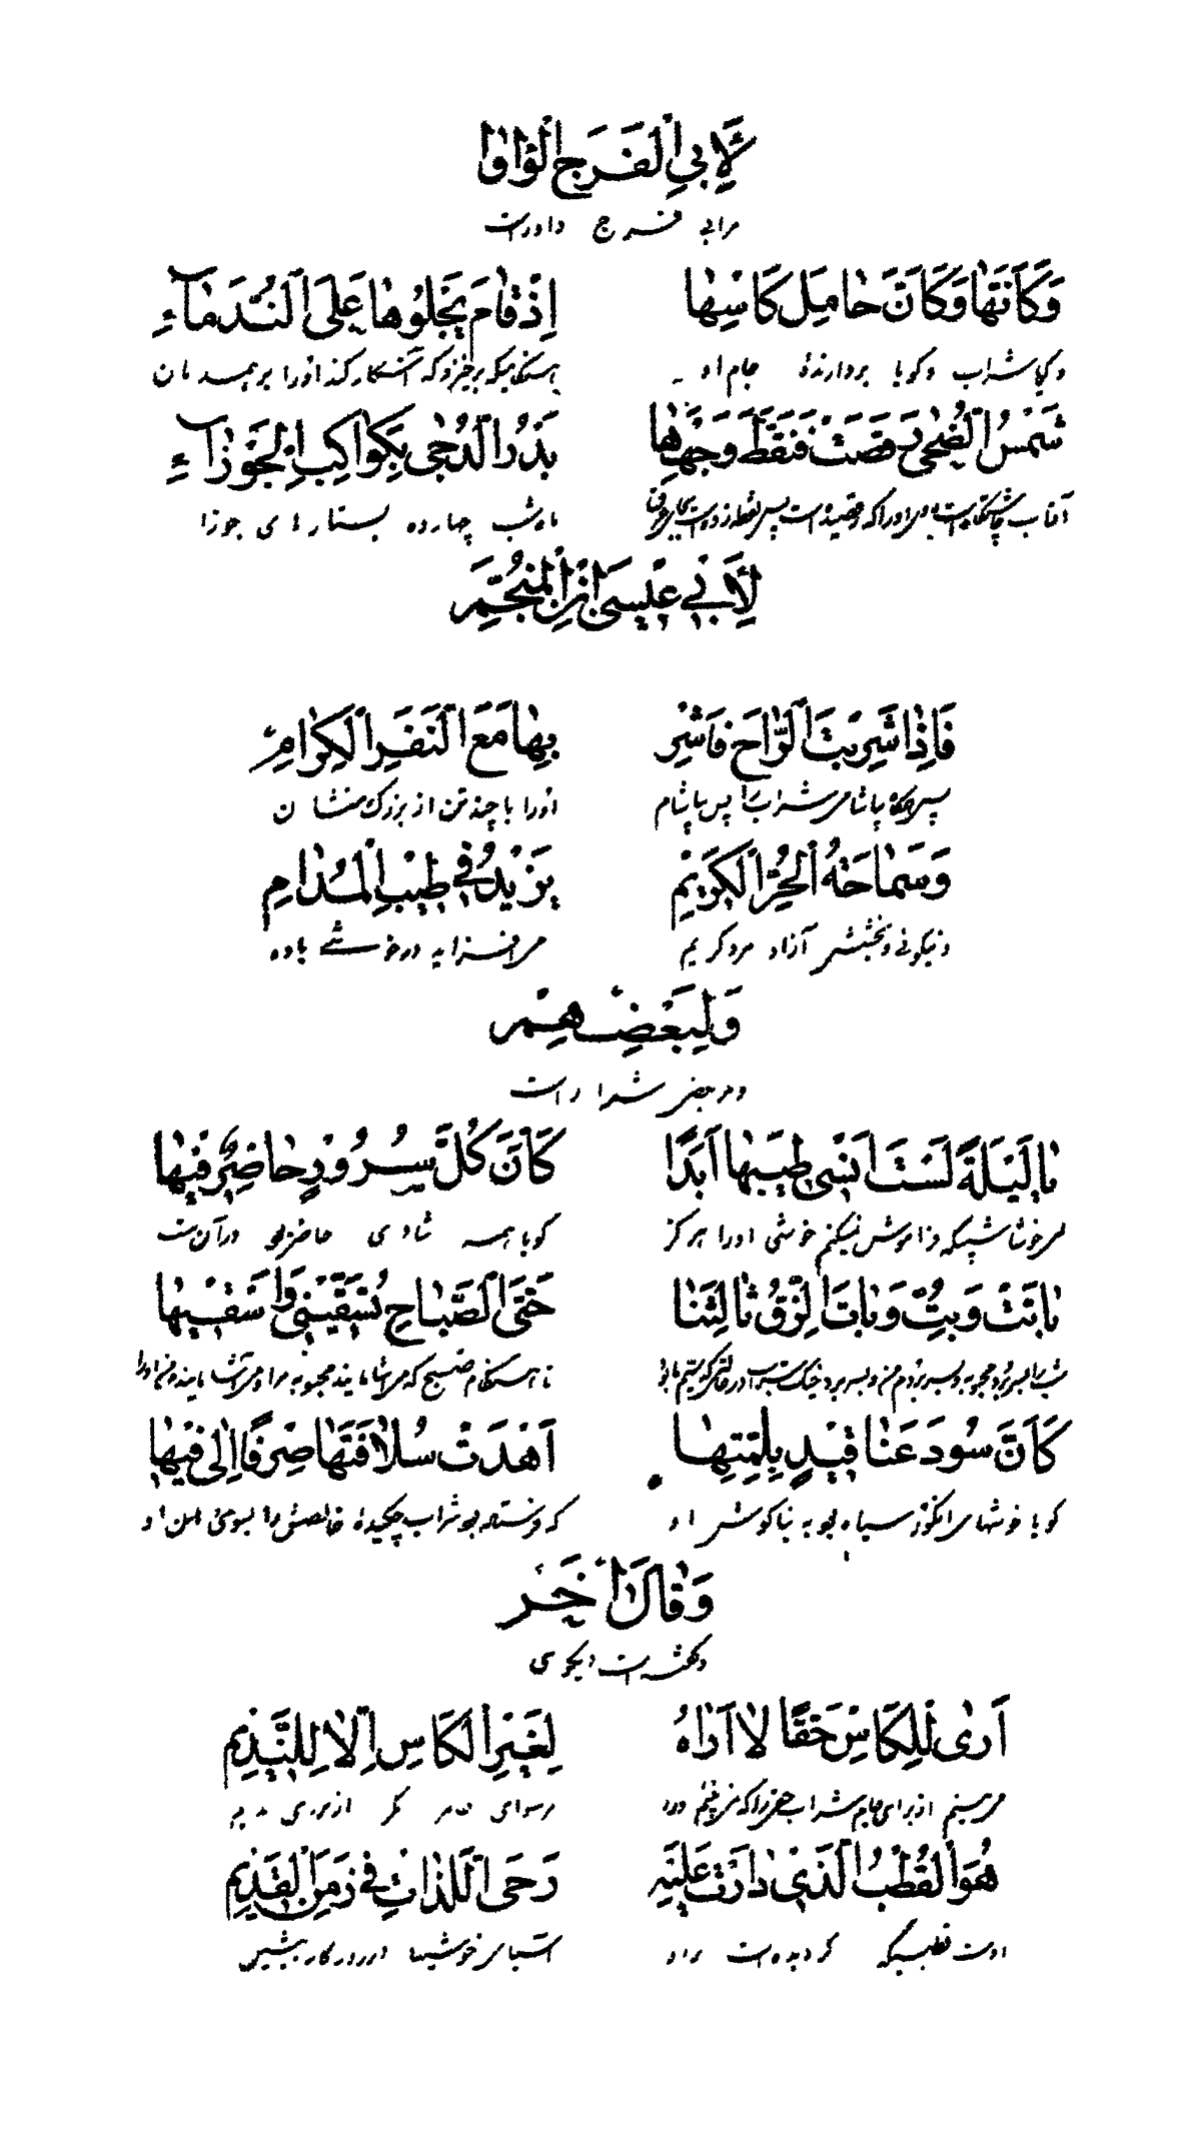 لِأَبِي الْفَرَجِ الْوَاوَا
مرابی فرج واوراست
وَكَأَنَّهَا وَكَأَنَّ حَامِلَ كَاسِهَا إِذْ قَامَ يَجْلُوهَا عَلَى النُّدَمَاءِ
و گویا شراب و گویا بردارندهٔ جام او هنگامیکه برخیزد که آشکار کند او را بر همدمان
شَمْسُ الضُّحَى رَقَصَتْ فَنَقَّطَ وَجْهَهَا بَدْرُ الدُّجَى بِكَوَاكِبِ الْجَوْزَاءِ
آفتاب چاشتگاه است ماه شب چهارده بستارهای جوزا
لِأَبِي عِيسَى ابْنِ الْمُنَجِّمِ
فَإِذَا شَرِبْتَ الرَّاحَ فَاشْرِ بِهَا مَعَ النَّفَرِ الْكِرَامِ
پس هرگاه بیاشامی شراب را پس بیاشام او را با چند تن از بزرگ منشان
وَسَمَاحَةُ الْحُرِّ الْكَرِيْمِ يَزِيْدُ فِي طِيْبِ الْمُدَامِ
و نیکوئی و بخشش آزاد مرد کریم می افزاید در خوشی باده
وَلِبَعْضِهِمْ
و مر بعضی شعرا راست
يَا لَيْلَةً لَسْتُ أَنْسَى طِيْبَهَا أَبَدًا كَأَنَّ كُلَّ سُرُوْرٍ حَاضِرٌ فِيْهَا
ای خوشا شبیکه فراموش نمیکنم خوشی او را هرگز گویا همه شادی حاضر بود در آن شب
بَاتَتْ وَبِتُّ وَبَاتَ الزِّقُّ ثَالِثَنَا حَتَّى الصَّبَاحِ تُسَقِّيْنِي وَأَسْقِيْهَا
تا هنگام صبح که
كَأَنَّ سُودَ عَنَاقِيْدٍ بِلِمَّتِهَا أَهْدَتْ سُلَافَتَهَا صِرْفًا إِلَى فِيْهَا
گویا خوشهای انگور سیاه بود به بناگوش او که فرستاده بود شراب چکیدهٔ خالصش را بسوی دهن او
وَقَالَ آخَرُ
و گفته است دیگری
أَرَى لِلْكَاسِ حَقًّا لَا أَرَاهُ لِغَيْرِ الْكَاسِ إِلَّا لِلنَّدِيْمِ
می بینم از برای جام شراب حقی را که نمی بینم او را سوای جام مگر از برای ندیم
هُوَ الْقُطْبُ الَّذِيْ دَارَتْ عَلَيْهِ رَحَى اللَّذَّاتِ فِي زَمَنِ الْقَدِيْمِ
اوست قطبیکه گردیده است بر او آسیای خوشیها در روزگار پیشین